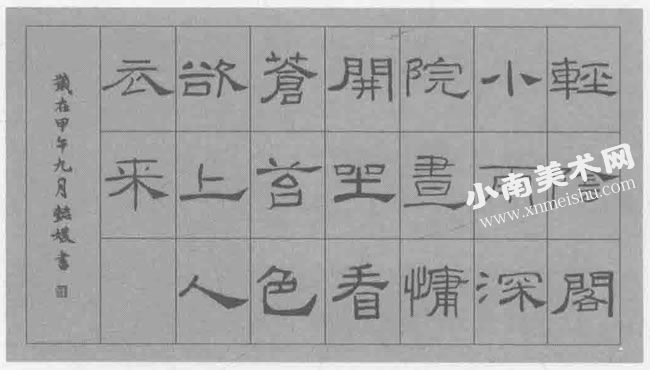 輕陰閣
小雨深
院晝慵
開坐看
蒼苔色
欲上人
衣来
歲在甲午九月書
小南美术网
www.xnmeishu.com